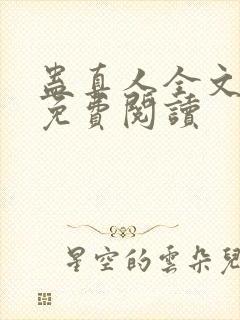 蛊真人全文
免費閱讀
星空的雲朵兒